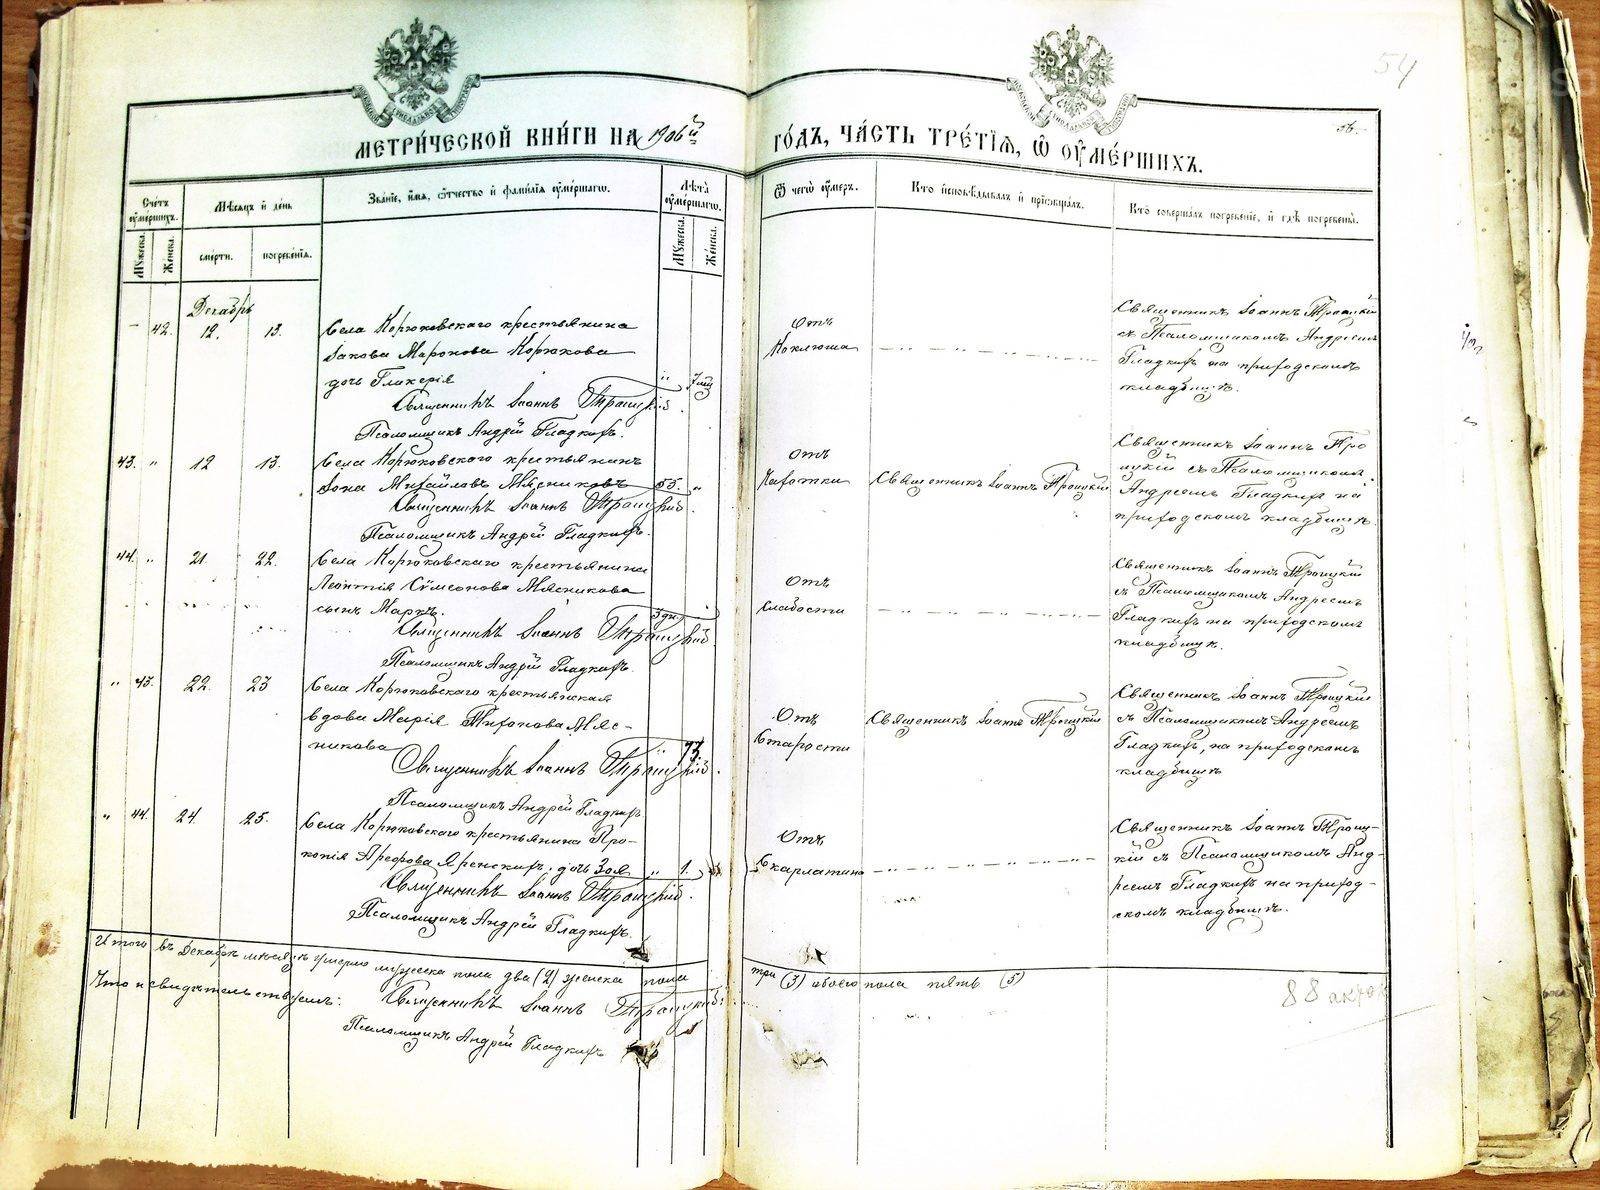 54
МЕТРИ́ЧЕСКОЙ КНИ́ГИ НА 1906й
ГО́ДЪ, ЧА́СТЬ ТРЕ́ТІѦ, Ѡ҆ ОУ҆МЕ́РШИХЪ.
Сче́тъ оу҆ме́ршихъ.
Мѣ́сяцъ и҆ де́нь
Зва́ніе, и҆́мя, ѻ҆́тчество и҆ фами́лія оу҆ме́ршагѡ.
Лѣ́та оу҆ме́ршагѡ.
Ѿ чегѡ̀ оу҆́меръ.
Кто̀ и҆сповѣ́дывалъ и҆ прїѡбща́лъ.
Кто̀ соверша́лъ погребе́ніе, и҆ гдѣ̀ погребены̀.
Му́жеска.
Же́нска.
сме́рти.
погребе́нія.
Му́жеска.
Же́нска.
Декабрь
– 42. 12. 13.
Села Корюковскаго крестьянина
Іакова Маронова Корюкова
дочь Гликерія " 7 мѣс
Священникъ Іоаннъ Троицкій.
Псаломщикъ Андрей Гладкихъ.
Отъ
Коклюша
Священникъ Іоаннъ Троицкій
съ Псаломщикомъ Андреемъ
Гладкихъ на приходскомъ
кладбищѣ.
43. " 12 13.
Села Корюковскаго крестьянинъ
Іона Михайловъ Мясниковъ 55. "
Священникъ Іоаннъ Троицкій.
Псаломщикъ Андрей Гладкихъ.
отъ
Чахотки
Священникъ Іоаннъ Троицкій
Священникъ Іоаннъ Тро
ицкій съ Псаломщикомъ
Андреемъ Гладкихъ на
приходскомъ кладбищѣ.
44. " 21. 22.
Села Корюковскаго крестьянина
Леонтія Сѵмеонова Мясникова
сынъ Маркъ. 3 дн.
Священникъ Іоаннъ Троицкій.
Псаломщикъ Андрей Гладкихъ.
Отъ
Слабости
Священникъ Іоаннъ Троицкій
съ Псаломщикомъ Андреемъ
Гладкихъ на приходскомъ
кладбищѣ.
" 43. 22. 23
Села Корюковскаго крестьянская
вдова Марія Тихонова Мяс-
никова 73.
Священникъ Іоаннъ Троицкій.
Псаломщикъ Андрей Гладкихъ
Отъ
Старости
Священникъ Іоаннъ Троицкій
Священникъ Іоаннъ Троицкій
съ Псаломщикомъ Андреемъ
Гладкихъ, на приходскомъ
кладбищѣ
" 44. 24. 25.
Села Корюковскаго крестьянина Про-
копія Арефова Яренскихъ, дочь Зоя. " 1.
Священникъ Іоаннъ Троицкій.
Псаломщикъ Андрей Гладкихъ.
Отъ
Скарлатины
Священникъ Іоаннъ Троиц-
кій съ Псаломщикомъ Анд-
реемъ Гладкихъ на приход-
скомъ кладбищѣ.
Итого въ Декабрѣ мѣсяцѣ умерло мужеска пола два (2) женска пола
три (3) обоего пола пять (5)
Что и свидѣтельствуемъ: Священникъ Іоаннъ Троицкій.
Псаломщикъ Андрей Гладкихъ